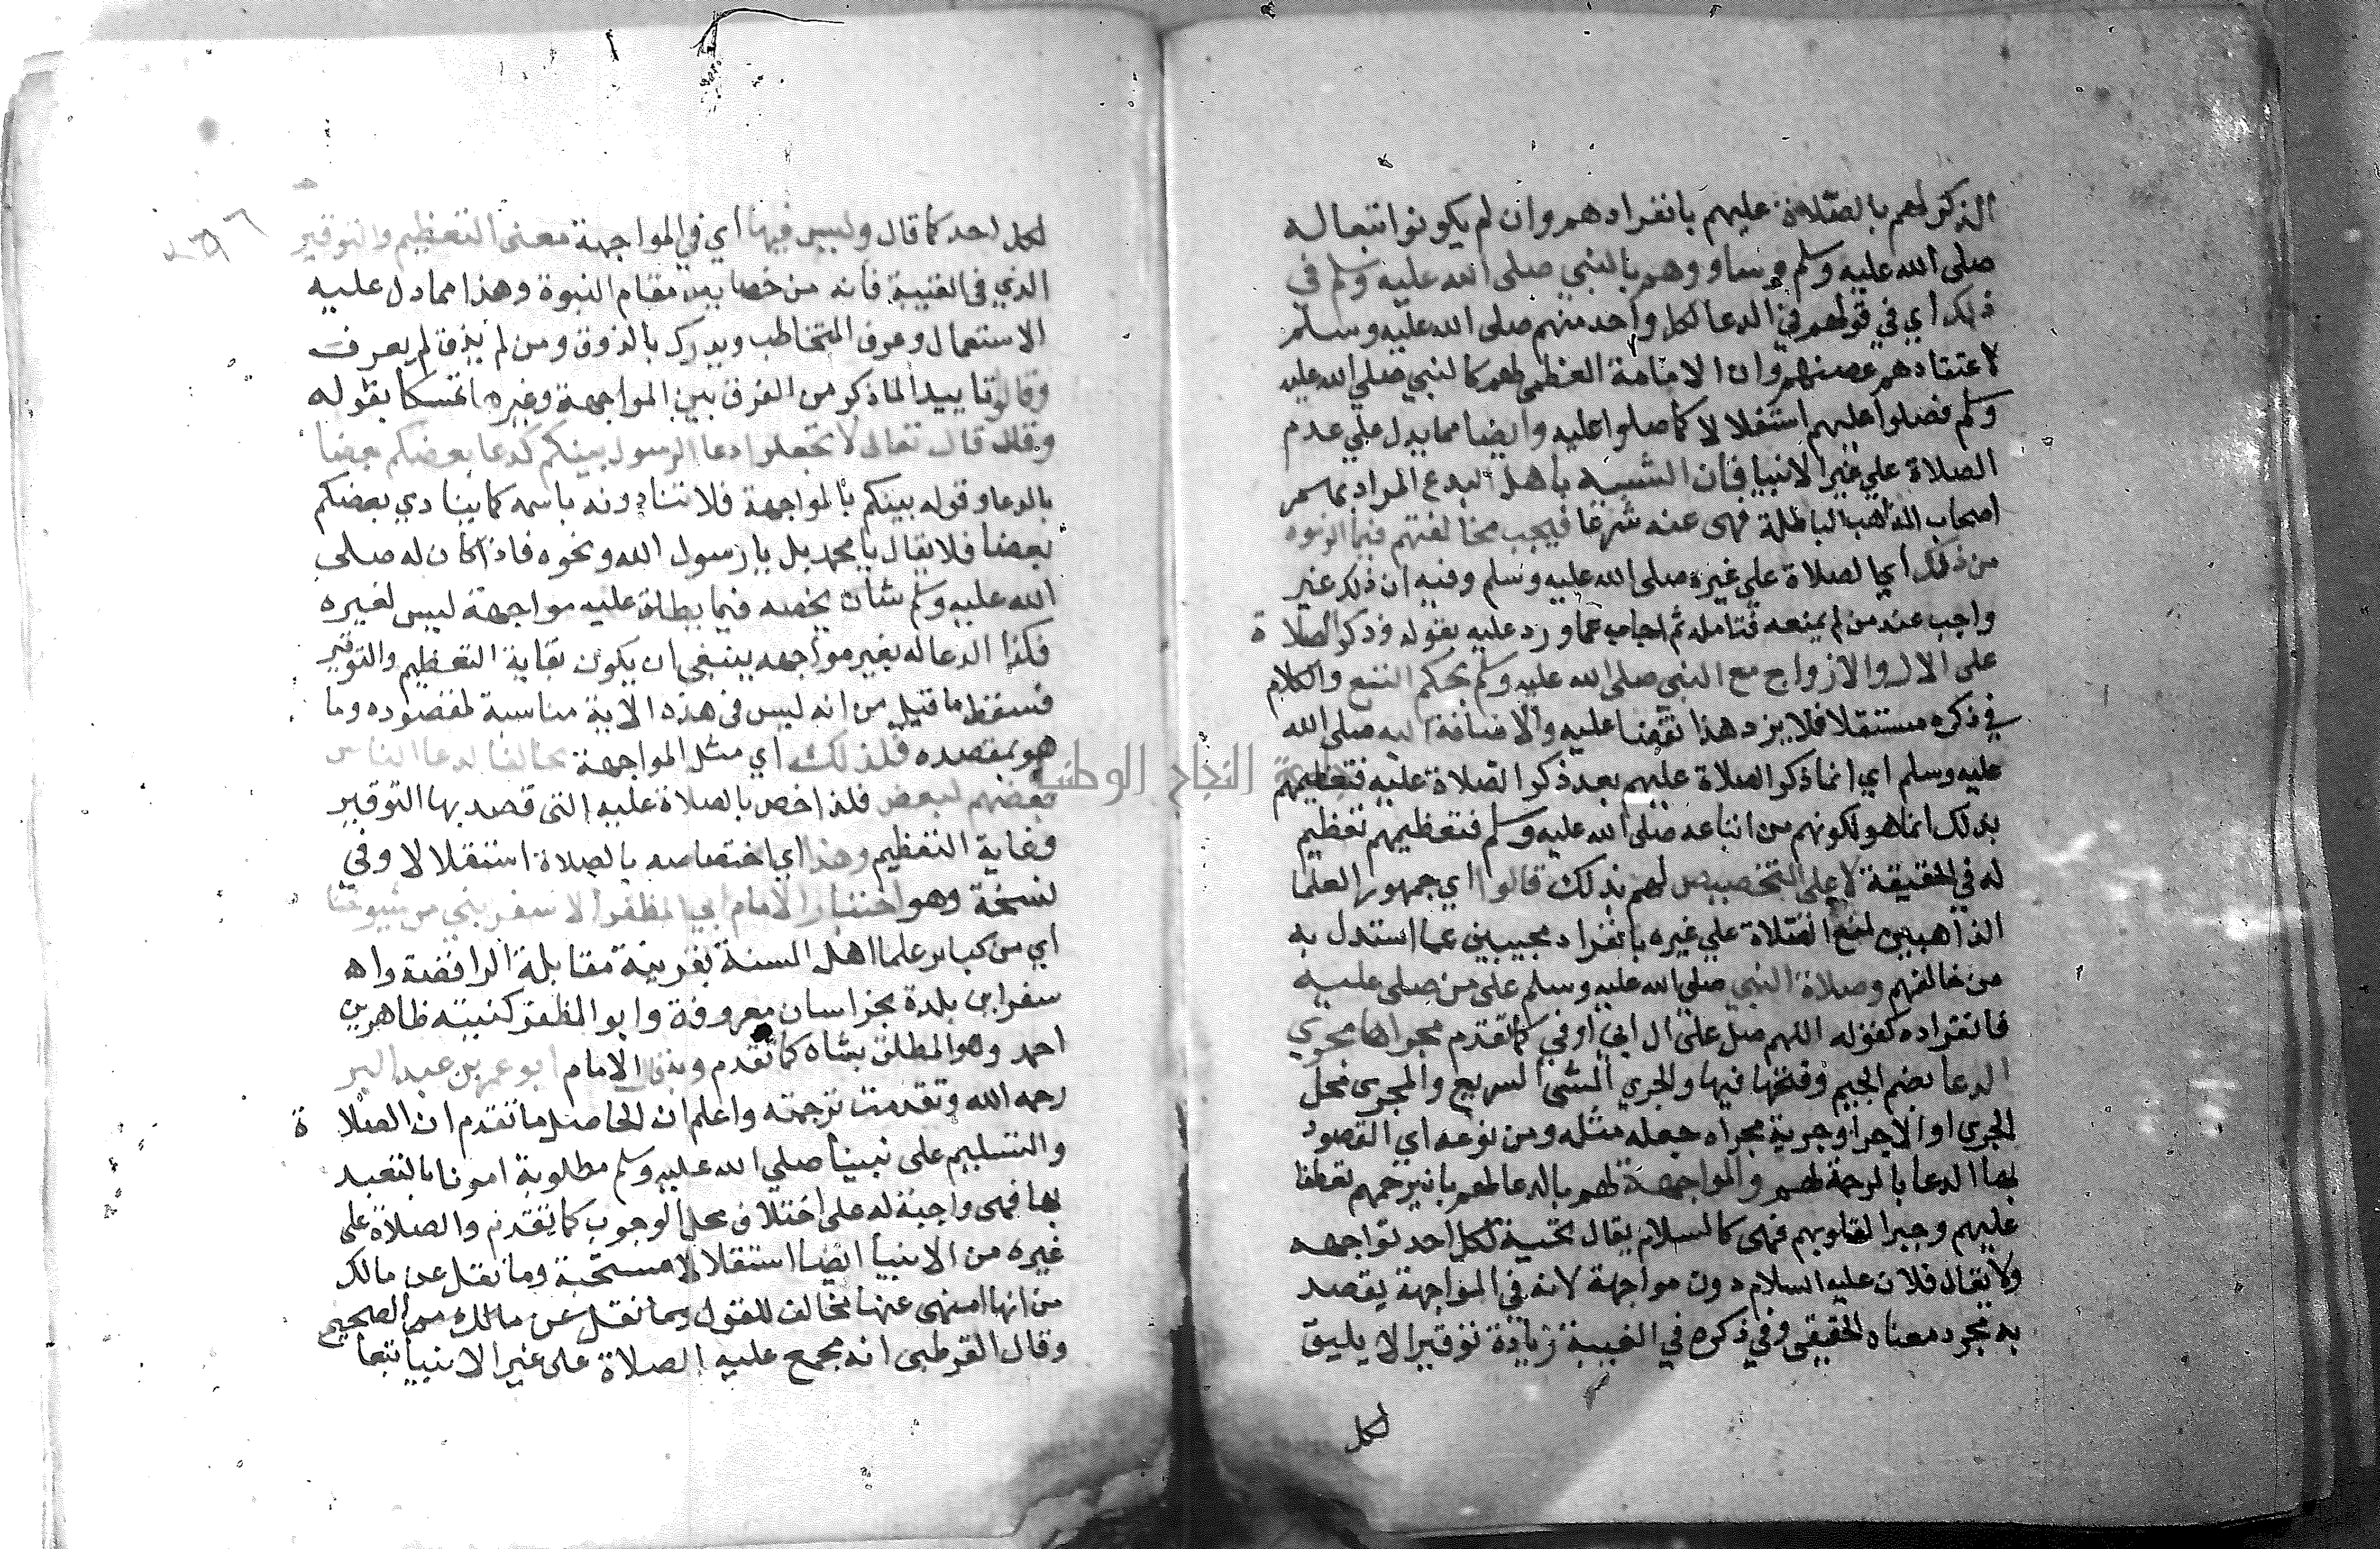 الذكر لهم بالصلاة عليهم بانفرادهم وان لم يكونوا تبعا له
صلى الله عليه وسلم وساووهم بالنبي صلى الله عليه وسلم في
ذلك اي في قولهم في الدعا لكل واحد منهم صلى الله عليه وسلم
لاعتقادهم عصمتهم وان الامامة العظمى لهم كالنبي صلى الله عليه
وسلم فصلوا عليهم استقلالا كما صلوا عليه وايضا مما يدل على عدم
الصلاة على غير الانبيا فان التشبه باهل البدع المراد بهم
اصحاب المذاهب الباطلة نهى عنه شرعا فيجب مخالفتهم فيما التزموه
من ذلك اي الصلاة على غيره صلى الله عليه وسلم وفيه ان ذلك غير
واجب عند من لم يمنعه فتامله ثم اجاب عما ورد عليه بقوله وذكر الصلاة
على الال والازواج مع النبي صلى الله عليه وسلم بحكم التبع والكلام
في ذكره مستقلا فلا يرد هذا نقضا عليه والاضافة اليه صلى الله
عليه وسلم اي انما ذكر الصلاة عليهم بعد ذكر الصلاة عليه فتعظيمهم
بذلك انما هو لكونهم من اتباعه صلى الله عليه وسلم فتعظيمهم تعظيم
له في الحقيقة لا على التخصيص لهم بذلك قالوا اي جمهور العلما
الذاهبين لمنع الصلاة على غيره بانفراد مجيبين عما استدل به
من خالفهم وصلاة النبي صلى الله عليه وسلم على من صلى عليه
فانفراده كقوله اللهم صل على ال ابي اوفى كما تقدم مجراها مجرى
الدعا بضم الجيم وفتحها فيها والجري المشي السريع والمجرى محل
الجري او الاجرا وجريه مجراه جعله مثله ومن نوعه اي المقصود
بها الدعا بالرحمة لهم والمواجهة لهم بالدعا لهم بان يرحمهم تعطفا
عليهم وجبرا لقلوبهم فهى كالسلام يقال تحية لكل احد تواجهه
ولا يقال فلان عليه السلام دون مواجهة لانه في المواجهة يقصد
به مجرد معناه الحقيقى وفي ذكره في الغيبة زيادة توقير لا يليق
لكل
لكل احد كما قال وليس فيها اي في المواجهة معنى التعظيم والتوقير
الذي في الغيبة فانه من خصايص مقام النبوة وهذا مما دل عليه
الاستعمال وعرف التخاطب ويدرك بالذوق ومن لم يذق لم يعرف
وقالوا تاييدا لما ذكر من الفرق بين المواجهة وغيرها تمسكا بقوله
وقال تعالى لا تجعلوا دعا الرسول بينكم كدعا بعضكم بعضا
بالدعا وقوله بينكم بالمواجهة فلا تنادونه باسمه كما ينادي بعضكم
بعضا فلا يقال يا محمد بل يا رسول الله ونحوه فاذا كان له صلى
الله عليه وسلم شان يخصه فيما يطلق عليه مواجهة ليس لغيره
فكذا الدعا له بغير مواجهه ينبغى ان يكون بغاية التعظيم والتوقير
فسقط ما قيل من انه ليس في هذه الاية مناسبة لمقصوده وما
هو بمقصده فلذلك اي مثل المواجهة مخالفا لدعا الناس
بعضهم لبعض فلذا خص بالصلاة عليه التى قصد بها التوقير
وغاية التعظيم وهذا اي اختصاصه بالصلاة استقلالا وفي
نسخة وهو اختيار الامام ابي المظفر الاسفرايني من شيوخنا
اي من كبار علما اهل السنة بقرينة مقابلة الرافضة واه
سفراين بلدة بخراسان معروفة وابو المظفر كنيته ظاهر بن
احمد وهو المطلق بشاه كما تقدم وبه قال الامام ابو عمر بن عبد البر
رحمه الله وتقدمت ترجمته واعلم ان الحاصل ما تقدم ان الصلاة
والتسليم على نبينا صلى الله عليه وسلم مطلوبة امرنا بالتعبد
بها فهى واجبة له على اختلاف محل الوجوب كما تقدم والصلاة على
غيره من الانبيا ايضا استقلالا مستحبة وما نقل عن مالك
من انها منهى عنها مخالف للقول وما نقل عن مالك من الصحيح
وقال القرطبى انه مجمع عليه الصلاة على غير الانبيا تبعا
جامعة النجاح الوطنية